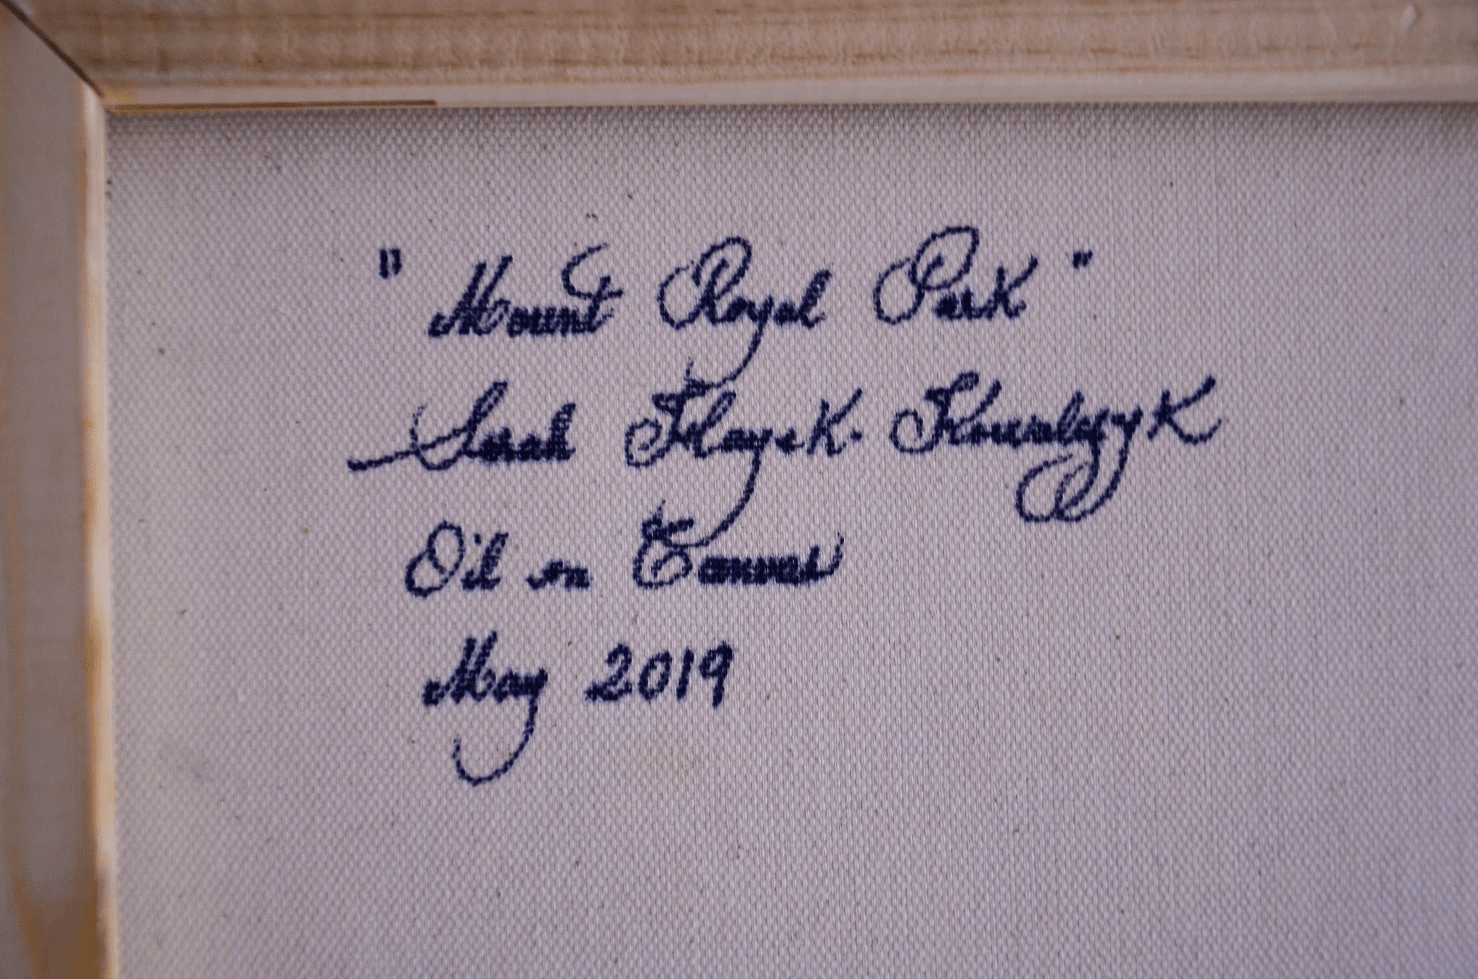 "Mount Royal Park"
Sarah Hayek-Kowalczyk
Oil on Canvas
May 2019